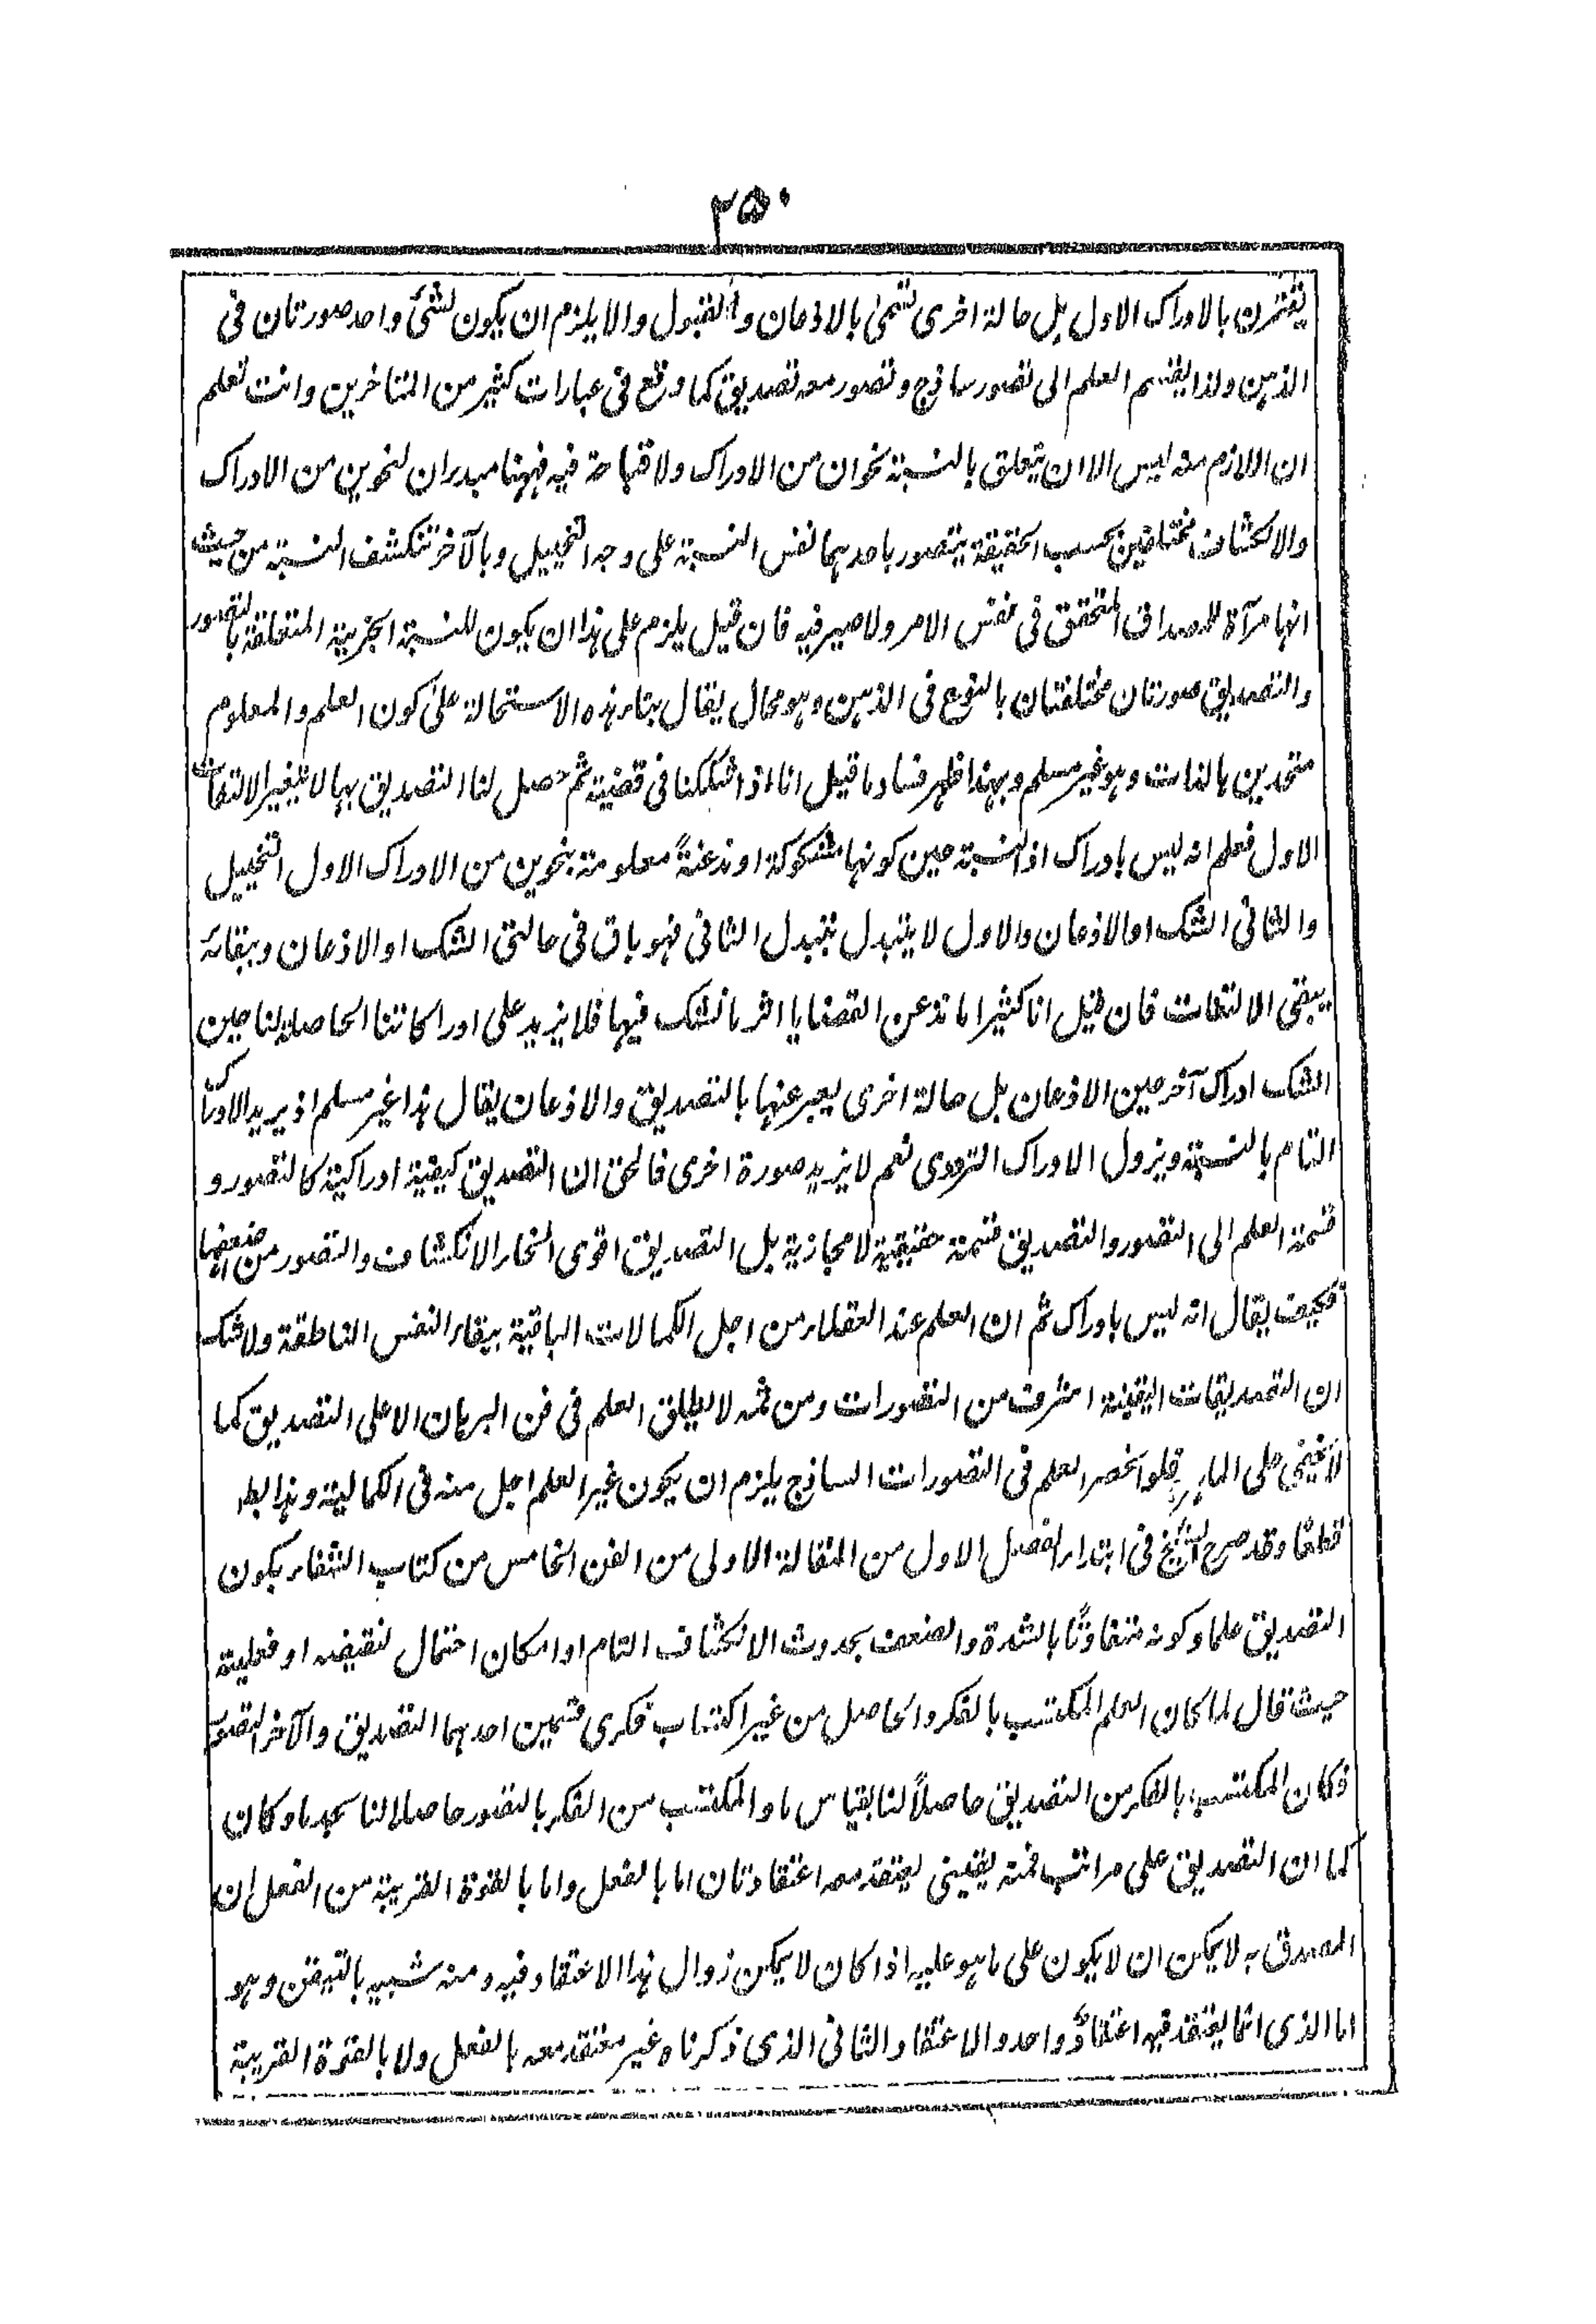 ٢٥٠
يقترن بالادراك الاول بل حالة اخرى تسمى بالاذعان والقبول والا يلزم ان يكون لشئ واحد صورتان فى
الذهن ولذا يقسم العلم الى تصور ساذج وتصور معه تصديق كما وقع فى عبارات كثير من المتاخرين وانت تعلم
ان اللازم منه ليس الا ان يتعلق بالنسبة نحوان من الادراك ولا قباحة فيه فههنا مبدران لنحوين من الادراك
والانكشاف مختلفين بحسب الحقيقة يتصور باحدهما نفس النسبة على وجه التخييل وبالآخر تنكشف النسبة من حيث
انها مرآة للمصداق المتحقق فى نفس الامر ولا ضير فيه فان قيل يلزم على هذا ان يكون للنسبة الخبرية المتعلقة بالتصور
والتصديق صورتان مختلفتان بالنوع فى الذهن وهو محال يقال بناء هذه الاستحالة على كون العلم والمعلوم
متحدين بالذات وهو غير مسلم وبهذا ظهر فساد ما قيل انا اذا شككنا فى قضية ثم حصل لنا التصديق بها لا يتغير الالتفات
الاول فعلم انه ليس بادراك اذ النسبة حين كونها مشكوكة او مذعنةً معلومة بنحوين من الادراك الاول التخييل
والثانى الشك او الاذعان والاول لا يتبدل بتبدل الثانى فهو باق فى حالتى الشك او الاذعان وببقائه
يبقى الالتفات فان قيل انا كثيرا ما نذعن القضايا اثر ما نشك فيها فلا يزيد على ادراكاتنا الحاصلة لنا حين
الشك ادراك آخر حين الاذعان بل حالة اخرى يعبر عنها بالتصديق والاذعان يقال هذا غير مسلم اذ يزيد الادراك
التام بالنسبة ويزول الادراك الترددى نعم لا يزيد صورة اخرى فالحق ان التصديق كيفية ادراكية كالتصور و
قسمة العلم الى التصور والتصديق قسمة حقيقية لا مجازية بل التصديق اقوى انحاء الانكشاف والتصور من اضعفها
فكيف يقال انه ليس بادراك ثم ان العلم عند العقلاء من اجل الكمالات الباقية ببقاء النفس الناطقة ولا شك
ان التصديقات اليقينة اشرف من التصورات ومن ثمه لا يطلق العلم فى فن البرهان الا على التصديق كما
لا يخفى على الماهر فلو انحصر العلم فى التصورات الساذج يلزم ان يكون غير العلم اجل منه فى الكمالية وهذا بط
قطعًا وقد صرح الشيخ فى ابتداء الفصل الاول من المقالة الاولى من الفن الخامس من كتاب الشفاء بكون
التصديق علما وكونه متفاوتًا بالشدة والضعف بحدوث الانكشاف التام او امكان احتمال نقيضه او فعليته
حيث قال لما كان العلم المكتسب بالفكر والحاصل من غير اكتساب فكرى قسمين احدهما التصديق والآخر التصور
وكان المكتسب بالفكر من التصديق حاصلاً لنا بقياس ما والمكتسب من الفكر بالتصور حاصلا لنا بحد ما وكان
كما ان التصديق على مراتب فمنه يقينى يعتقد معه اعتقادثان اما بالفعل واما بالقوة القريبة من الفعل ان
المصدق به لا يمكن ان لا يكون على ما هو عليه اذا كان لا يمكن زوال هذا الاعتقاد فيه ومنه شبيه بالتيقن وهو
اما الذى انما يعتقد فيه اعتقادٌ واحد والاعتقاد الثانى الذى ذكرناه غير معتقد معه بالفعل ولا بالقوة القريبة